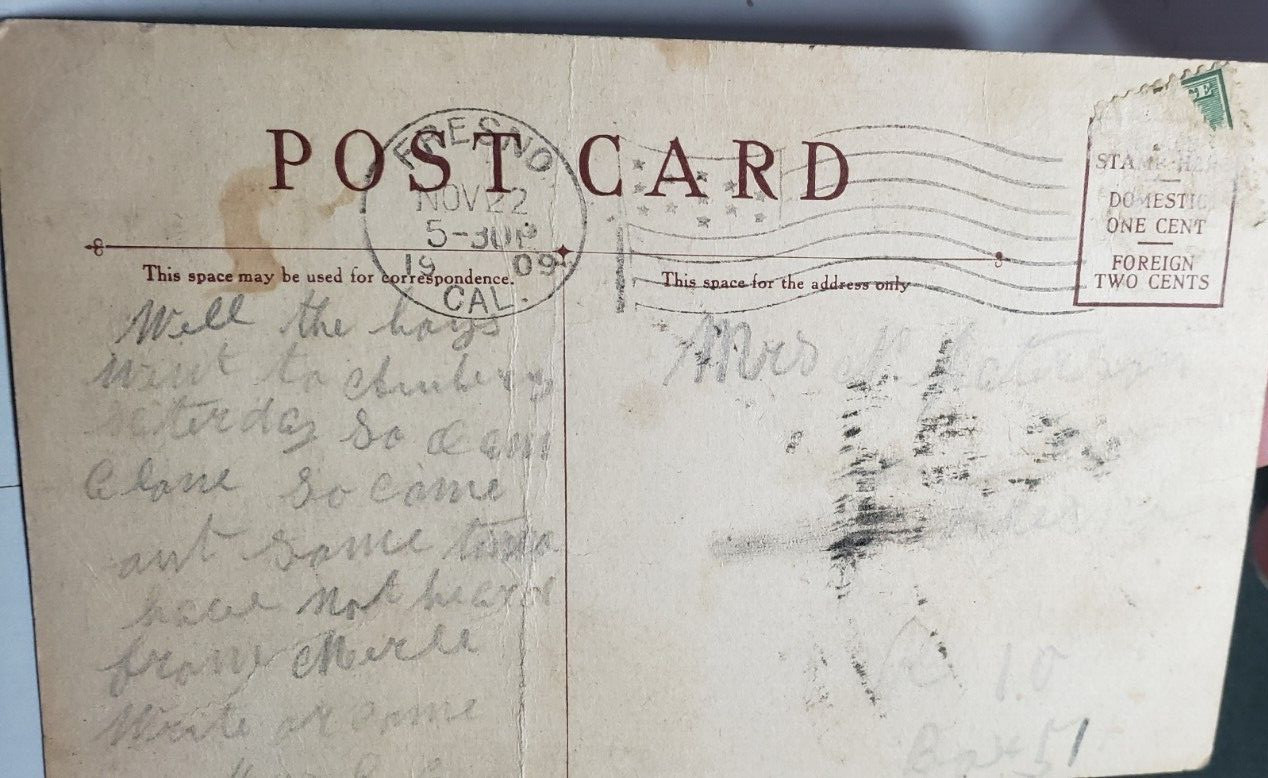 POST CARD
FRESNO
NOV 22
5-30P
1909
CAL.
STAMP HERE
DOMESTIC
ONE CENT
FOREIGN
TWO CENTS
This space may be used for correspondence.
This space for the address only
Well the boys
went to
Saterday So I am
alone So come
out some time
have not heard
from Merle
Write or come
Mrs N.
R 10
Box 51